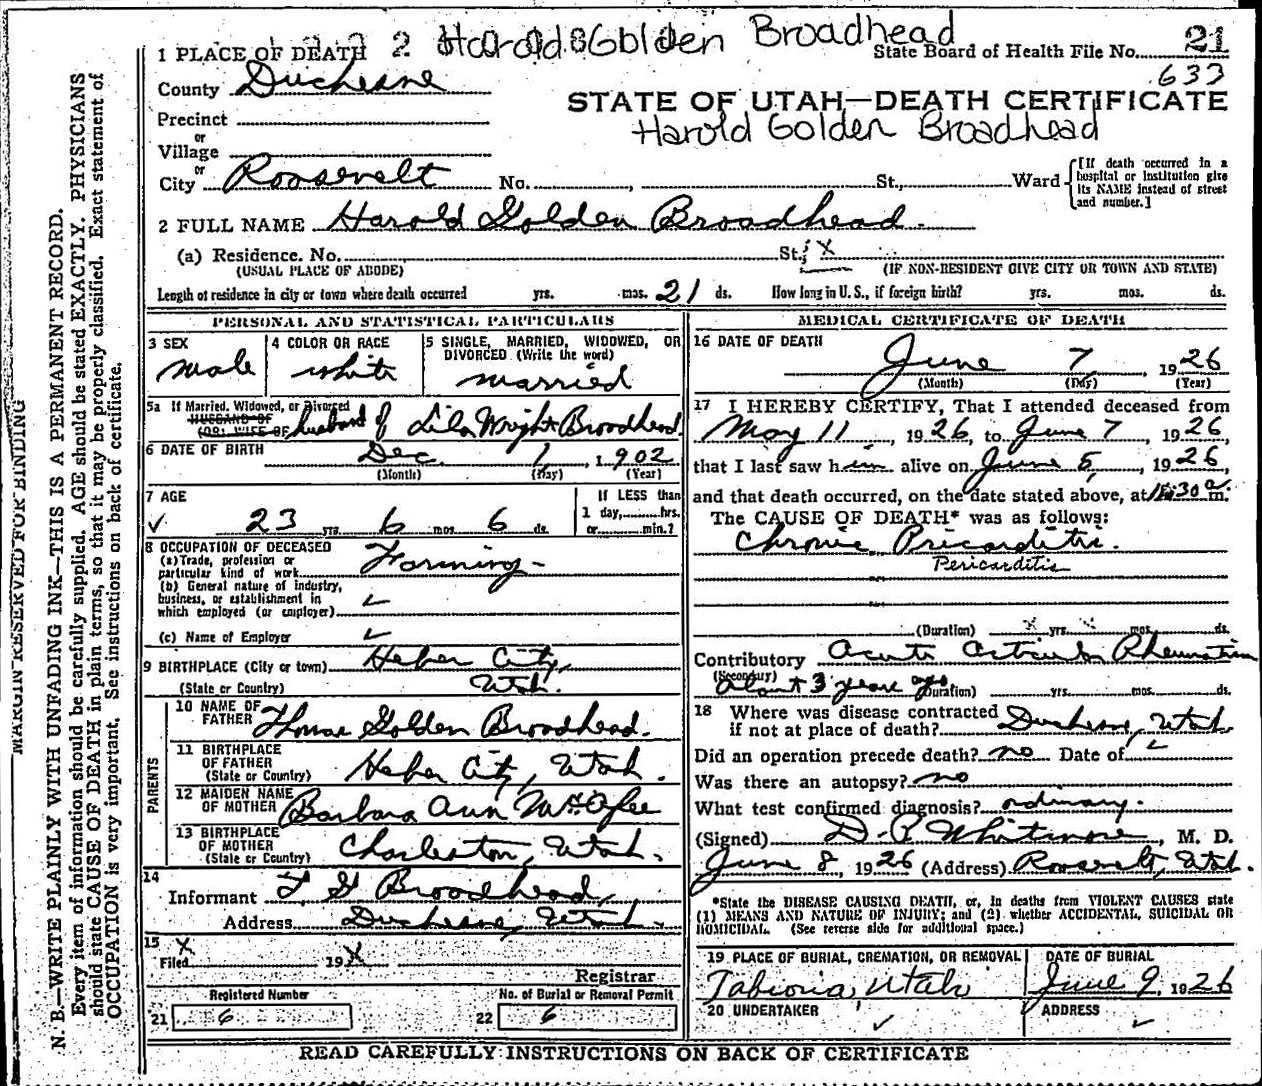 1 PLACE OF DEATH 2 Harold Golden Broadhead
State Board of Health File No. 21
633
County Duchesne
STATE OF UTAH—DEATH CERTIFICATE
Harold Golden Broadhead
Precinct
or
Village
or
City Roosevelt No. , St., Ward
[If death occurred in a
hospital or institution give
its NAME instead of street
and number.]
2 FULL NAME Harold Golden Broadhead.
(a) Residence. No. St; X
(USUAL PLACE OF ABODE) (IF NON-RESIDENT GIVE CITY OR TOWN AND STATE)
Length of residence in city or town where death occurred yrs. mos. 21 ds. How long in U. S., if foreign birth? yrs. mos. ds.
PERSONAL AND STATISTICAL PARTICULARS
3 SEX
male
4 COLOR OR RACE
white
5 SINGLE, MARRIED, WIDOWED, OR
DIVORCED (Write the word)
married
5a If Married, Widowed, or Divorced
HUSBAND OF
(OR) WIFE OF husband of Lila Wright Broadhead
6 DATE OF BIRTH Dec. 1, 1902
(Month) (Day) (Year)
7 AGE
✓ 23 yrs 6 mos 6 ds.
If LESS than
1 day, hrs.
or min.?
8 OCCUPATION OF DECEASED
(a) Trade, profession or
particular kind of work Farming -
(b) General nature of industry,
business, or establishment in
which employed (or employer) ✓
(c) Name of Employer ✓
9 BIRTHPLACE (City or town) Heber City,
(State or Country) Utah.
PARENTS
10 NAME OF
FATHER Thomas Golden Broadhead.
11 BIRTHPLACE
OF FATHER
(State or Country) Heber City, Utah.
12 MAIDEN NAME
OF MOTHER Barbara Ann McAfee
13 BIRTHPLACE
OF MOTHER
(State or Country) Charleston, Utah.
14
Informant T G Broadhead,
Address Duchesne, Utah.
15 X
Filed 19X
Registrar
Registered Number No. of Burial or Removal Permit
21 6 22 6
MEDICAL CERTIFICATE OF DEATH
16 DATE OF DEATH
June 7, 1926
(Month) (Day) (Year)
17 I HEREBY CERTIFY, That I attended deceased from
May 11, 1926, to June 7, 1926,
that I last saw him alive on June 5, 1926,
and that death occurred, on the date stated above, at 30 a m.
The CAUSE OF DEATH* was as follows:
Chronic Pricarditis.
Pericarditis
(Duration) X yrs. X mos. ds.
Contributory Acute Articular Rheumatism
(Secondary) About 3 years ago (Duration) yrs. mos. ds.
18 Where was disease contracted
if not at place of death? Duchesne, Utah.
Did an operation precede death? no Date of ✓
Was there an autopsy? no
What test confirmed diagnosis? ordinary.
(Signed) D. P. Whitmore, M. D.
June 8, 1926 (Address) Roosevelt, Utah.
*State the DISEASE CAUSING DEATH, or, in deaths from VIOLENT CAUSES state
(1) MEANS AND NATURE OF INJURY; and (2) whether ACCIDENTAL, SUICIDAL OR
HOMICIDAL. (See reverse side for additional space.)
19 PLACE OF BURIAL, CREMATION, OR REMOVAL
Tabiona, Utah
DATE OF BURIAL
June 9, 1926
20 UNDERTAKER
✓
ADDRESS
✓
READ CAREFULLY INSTRUCTIONS ON BACK OF CERTIFICATE
MARGIN RESERVED FOR BINDING
N. B.—WRITE PLAINLY WITH UNFADING INK—THIS IS A PERMANENT RECORD.
Every item of information should be carefully supplied. AGE should be stated EXACTLY. PHYSICIANS
should state CAUSE OF DEATH in plain terms, so that it may be properly classified. Exact statement of
OCCUPATION is very important. See instructions on back of certificate.